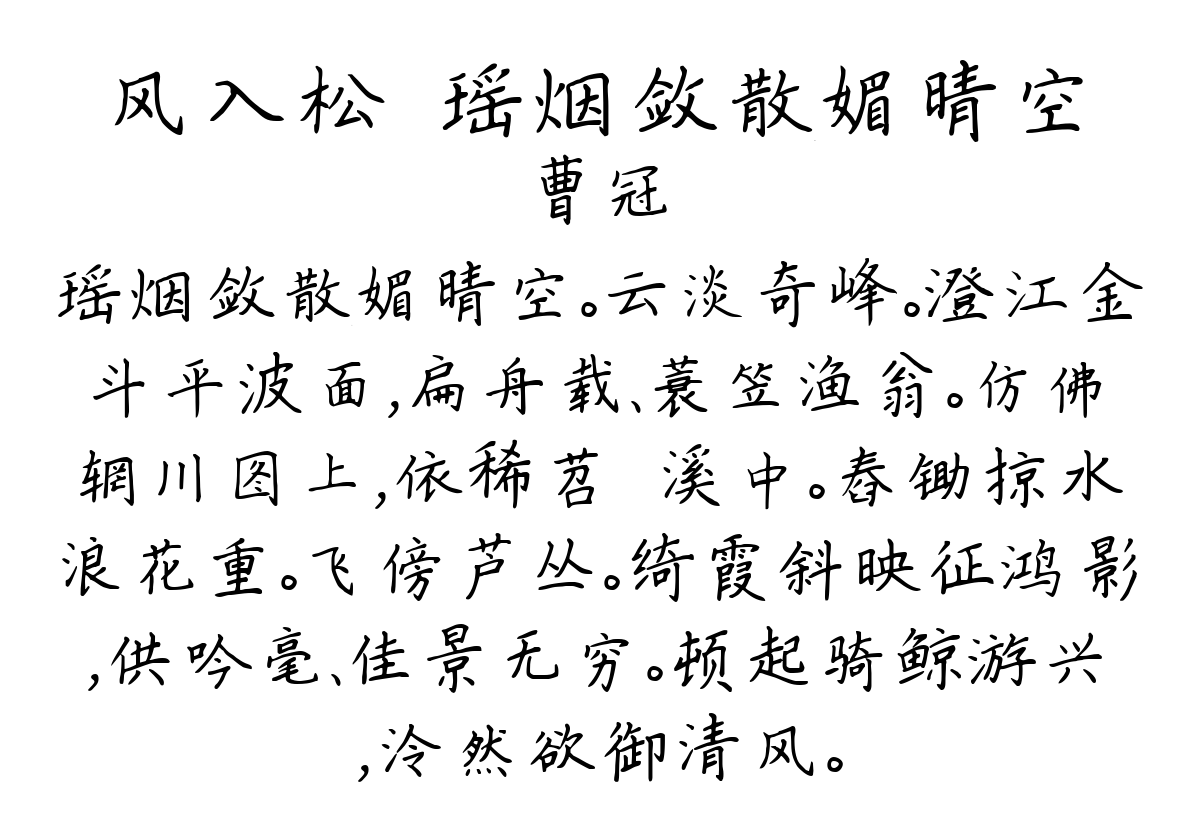 风入松 瑶烟敛散媚晴空
曹冠
瑶烟敛散媚晴空。云淡奇峰。澄江金
斗平波面,扁舟载、蓑笠渔翁。仿佛
辋川图上,依稀苕 溪中。舂锄掠水
浪花重。飞傍芦丛。绮霞斜映征鸿影
,供吟毫、佳景无穷。顿起骑鲸游兴
,泠然欲御清风。